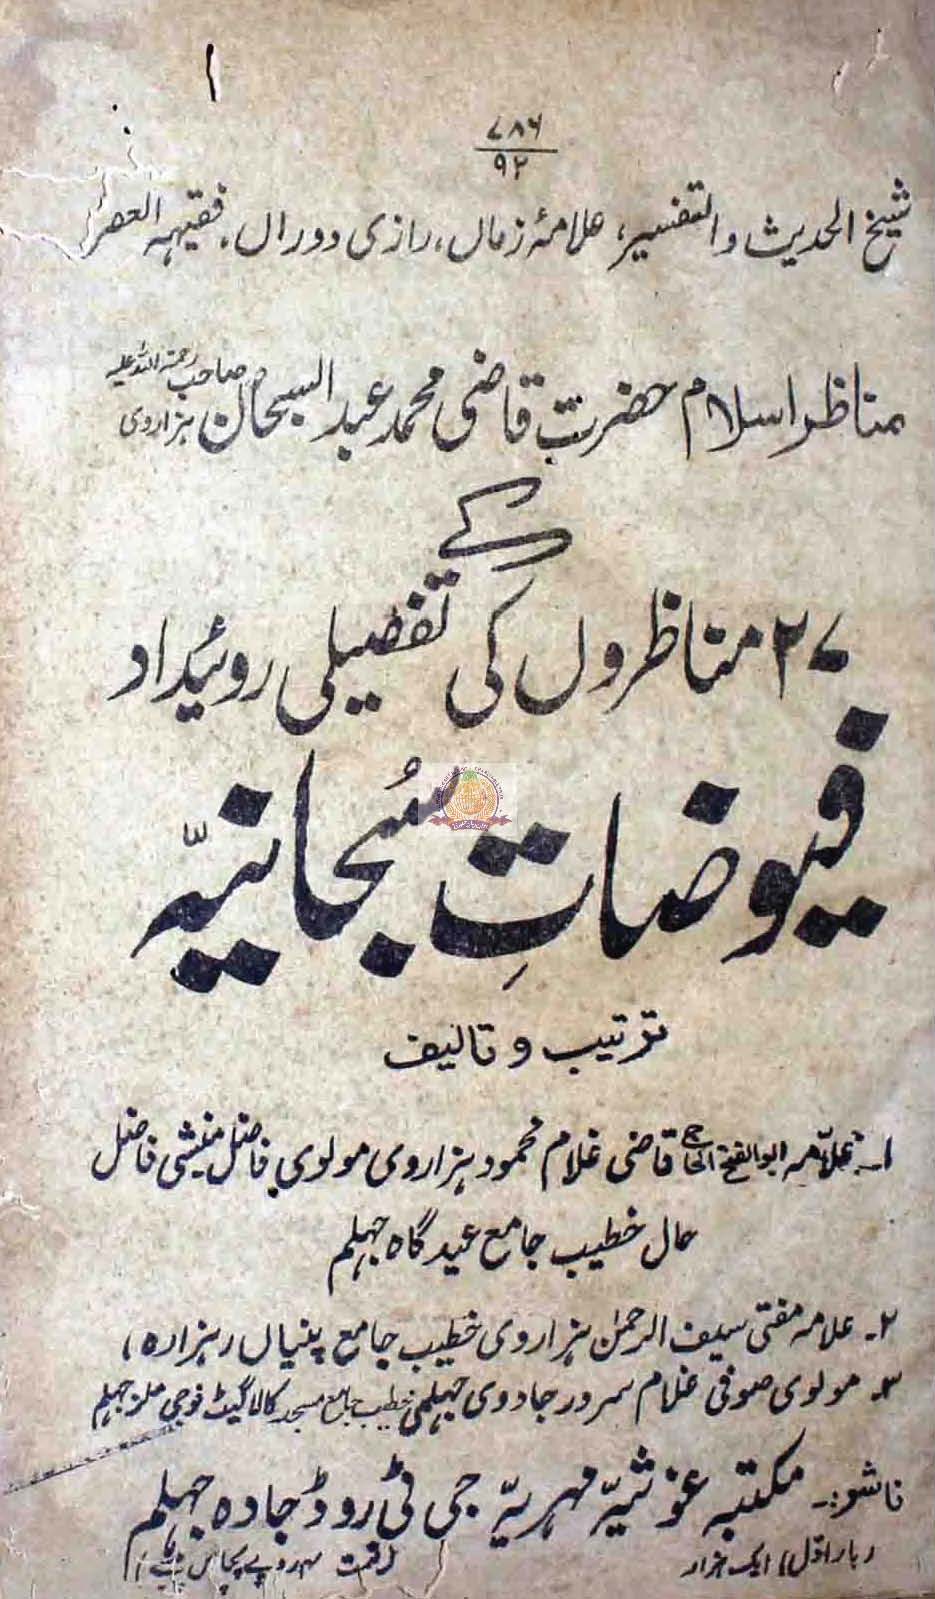 ۷۸۶
۹۲
شیخ الحدیث والتفسیر، علامۂ زماں، رازی دوراں، فقیہہ العصر
مناظر اسلام حضرت قاضی محمد عبد السبحان ہزاروی صاحب رحمۃ اللہ علیہ
کے
۲۷ مناظروں کی تفصیلی روئیداد
فیوضاتِ سُبحانیّہ
ترتیب و تالیف
۱۔ علّامہ ابو الفتح الحاج قاضی غلام محمود ہزاروی مولوی فاضل منشی فاضل
حال خطیب جامع عید گاہ جہلم
۲۔ علامہ مفتی سیف الرحمٰن ہزاروی خطیب جامع پنیاں (ہزارہ)
۳۔ مولوی صوفی غلام سرور جادوی جہلمی خطیب جامع مسجد کالا گیٹ فوجی ملز جہلم
ناشر:۔ مکتبہ غوثیّہ مہریّہ جی ٹی روڈ جادہ جہلم
(بار اوّل) ایک ہزار (قیمت روپے پچاس پیسے)